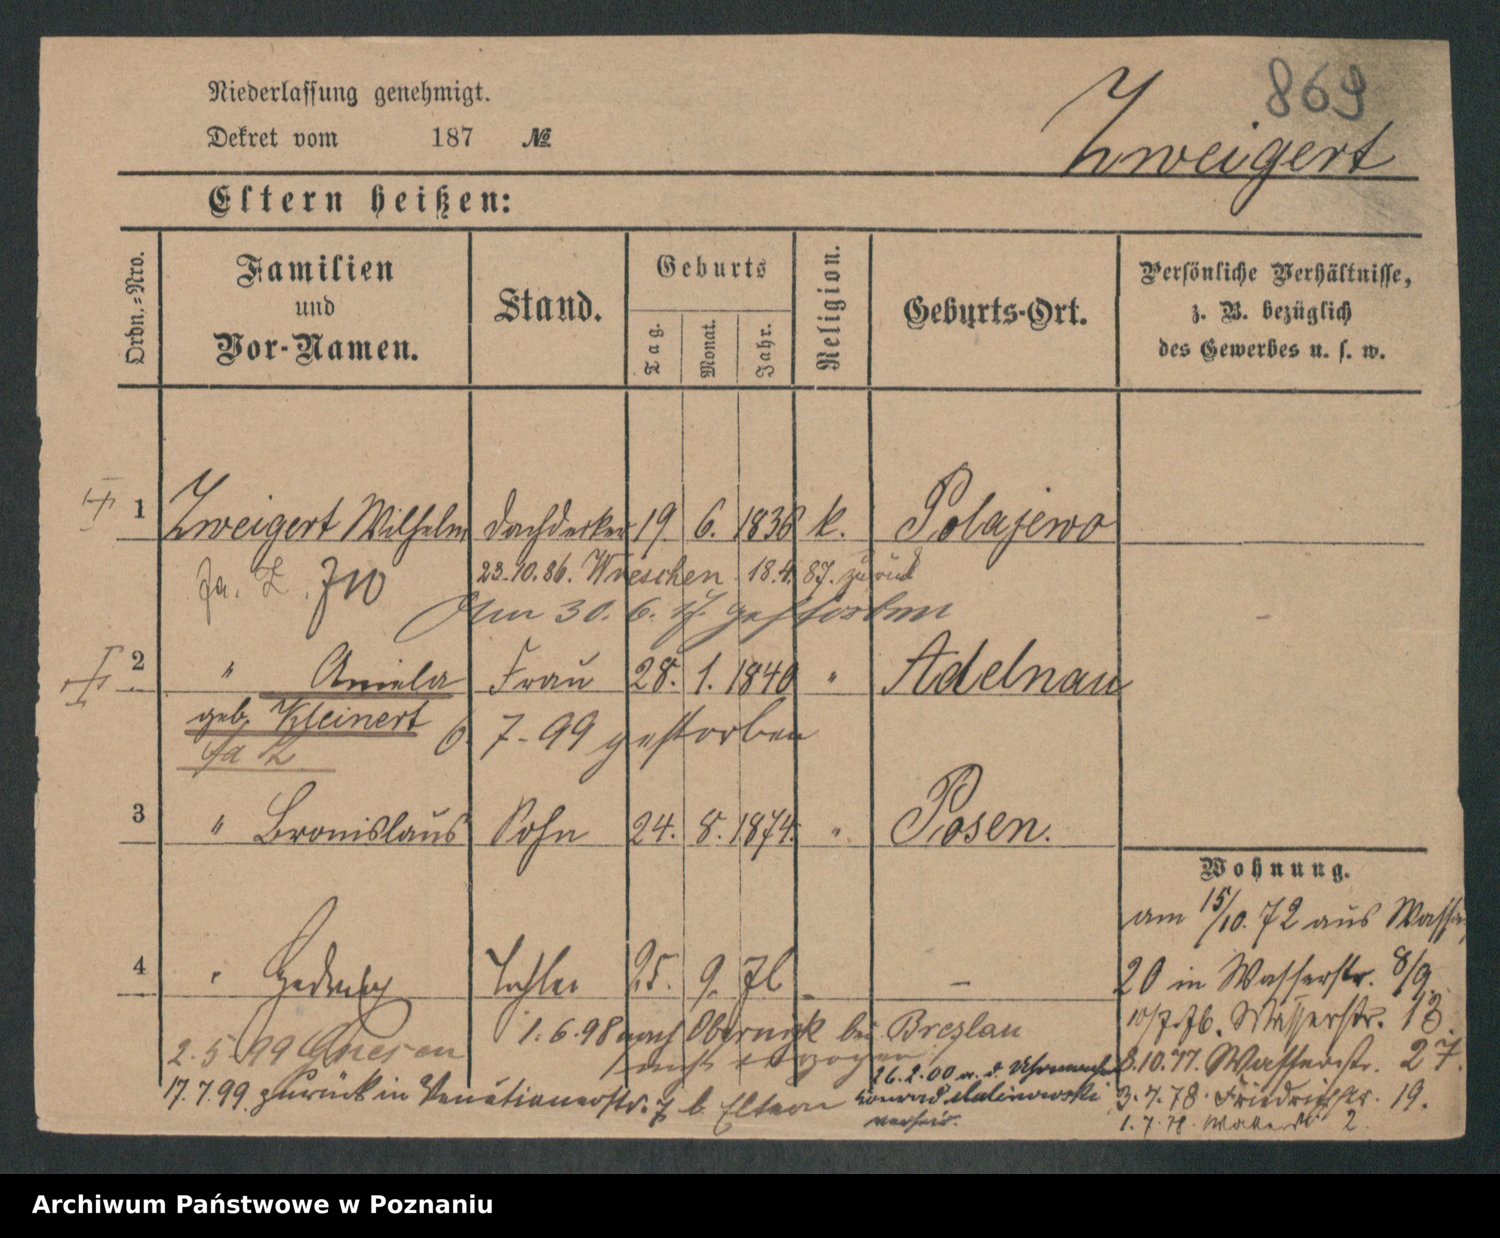 869
Niederlassung genehmigt.
Dekret vom 187 №
Zweigert
Eltern heißen:
Ordn.-Nro.
Familien und Vor-Namen.
Stand.
Geburts
Tag.
Monat.
Jahr.
Religion.
Geburts-Ort.
Persönliche Verhältnisse,
z. B. bezüglich
des Gewerbes u. s. w.
1 Zweigert Wilhelm Dachdecker 19. 6. 1836 k. Polajewo
23.10.86. Wreschen 18.4.87. zurück
Am 30. 6. gestorben
2 " Aniela Frau 28. 1. 1840 " Adelnau
geb. Kleinert 6. 7-99 gestorben
3 " Bronislaus Sohn 24. 8. 1874. " Posen.
Wohnung.
am 15/10. 72 aus
4 " Hedwig Tochter 25. 9. 76 –
20 in Wasserstr. 8/9.
1.6.98 nach Obernigk bei Breslau
10/7.76. Wasserstr. 13.
2.5.99 Gnesen
8.10.77. Wasserstr. 27.
26.2.00 m. d.
17.7.99. zurück in Venetianerstr. 7 b. Eltern
Malinowski
verheir.
3.7.78. Friedrichstr. 19.
Archiwum Państwowe w Poznaniu